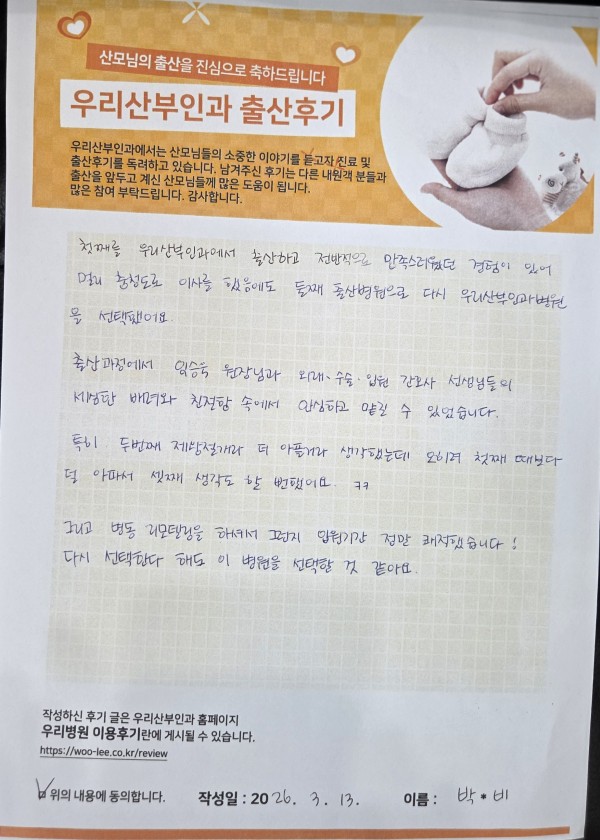 산모님의 출산을 진심으로 축하드립니다
우리산부인과 출산후기
우리산부인과에서는 산모님들의 소중한 이야기를 듣고자 진료 및
출산후기를 독려하고 있습니다. 남겨주신 후기는 다른 내원객 분들과
출산을 앞두고 계신 산모님들께 많은 도움이 됩니다.
많은 참여 부탁드립니다. 감사합니다.
첫째를 우리산부인과에서 출산하고 전반적으로 만족스러웠던 경험이 있어
멀리 충청도로 이사를 했음에도 둘째 출산병원으로 다시 우리산부인과병원
을 선택했어요.
출산과정에서 임승욱 원장님과 외래·수술·입원 간호사 선생님들의
세심한 배려와 친절함 속에서 안심하고 맡길 수 있었습니다.
특히 두번째 제왕절개라 더 아플거라 생각했는데 오히려 첫째 때보다
덜 아파서 셋째 생각도 할 뻔했어요. ㅋㅋ
그리고 병동 리모델링을 하셔서 그런지 입원기간 정말 쾌적했습니다!
다시 선택한다 해도 이 병원을 선택할 것 같아요.
작성하신 후기 글은 우리산부인과 홈페이지
우리병원 이용후기란에 게시될 수 있습니다.
https://woo-lee.co.kr/review
위의 내용에 동의합니다. 작성일 : 2026. 3. 13. 이름 : 박*비